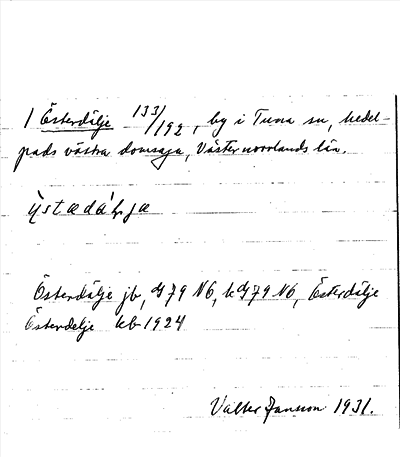 1 Österdälje 133/192, by i Tuna sn, Medel-
pads västra domsaga, Västernorrlands län.
Österdälje jb, Österdälje
Österdelje kb 1924
Valter Jansson 1931.